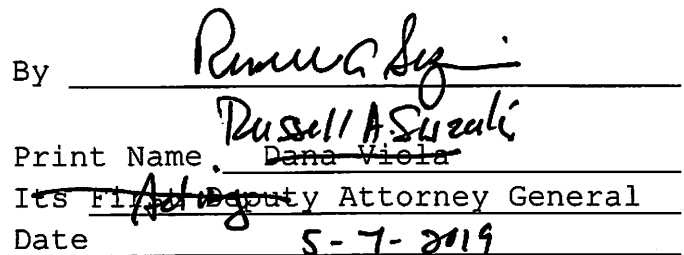 By Russell A. Suzuki
Russell A. Suzuki
Print Name Dana Viola
Its First Deputy Attorney General
Acting
Date 5-7-2019